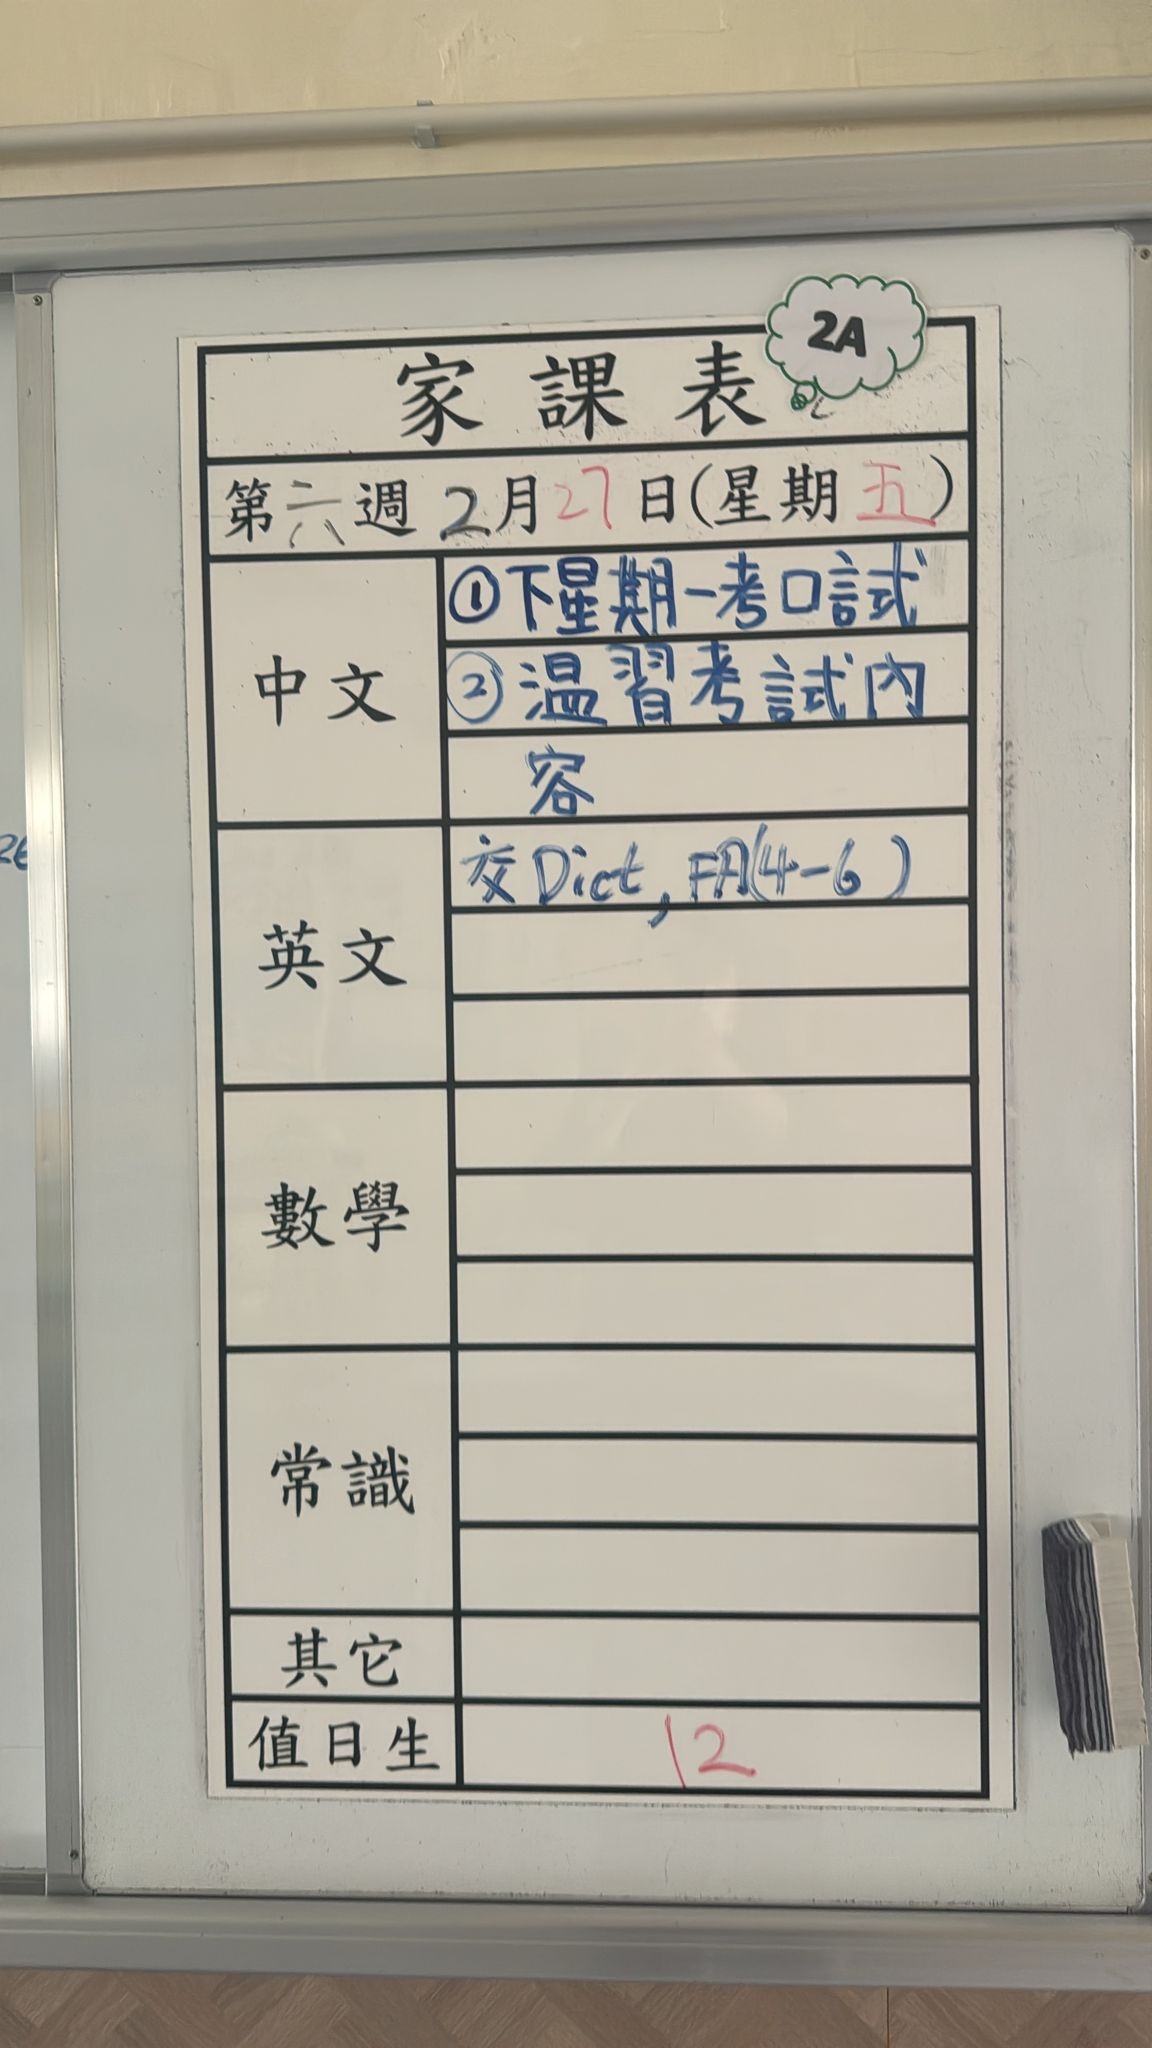 2A
家課表
第六週 2月27日(星期五)
中文
①下星期一考口試
②温習考試內
容
英文
交Dict, FA(4-6)
數學
常識
其它
值日生
12